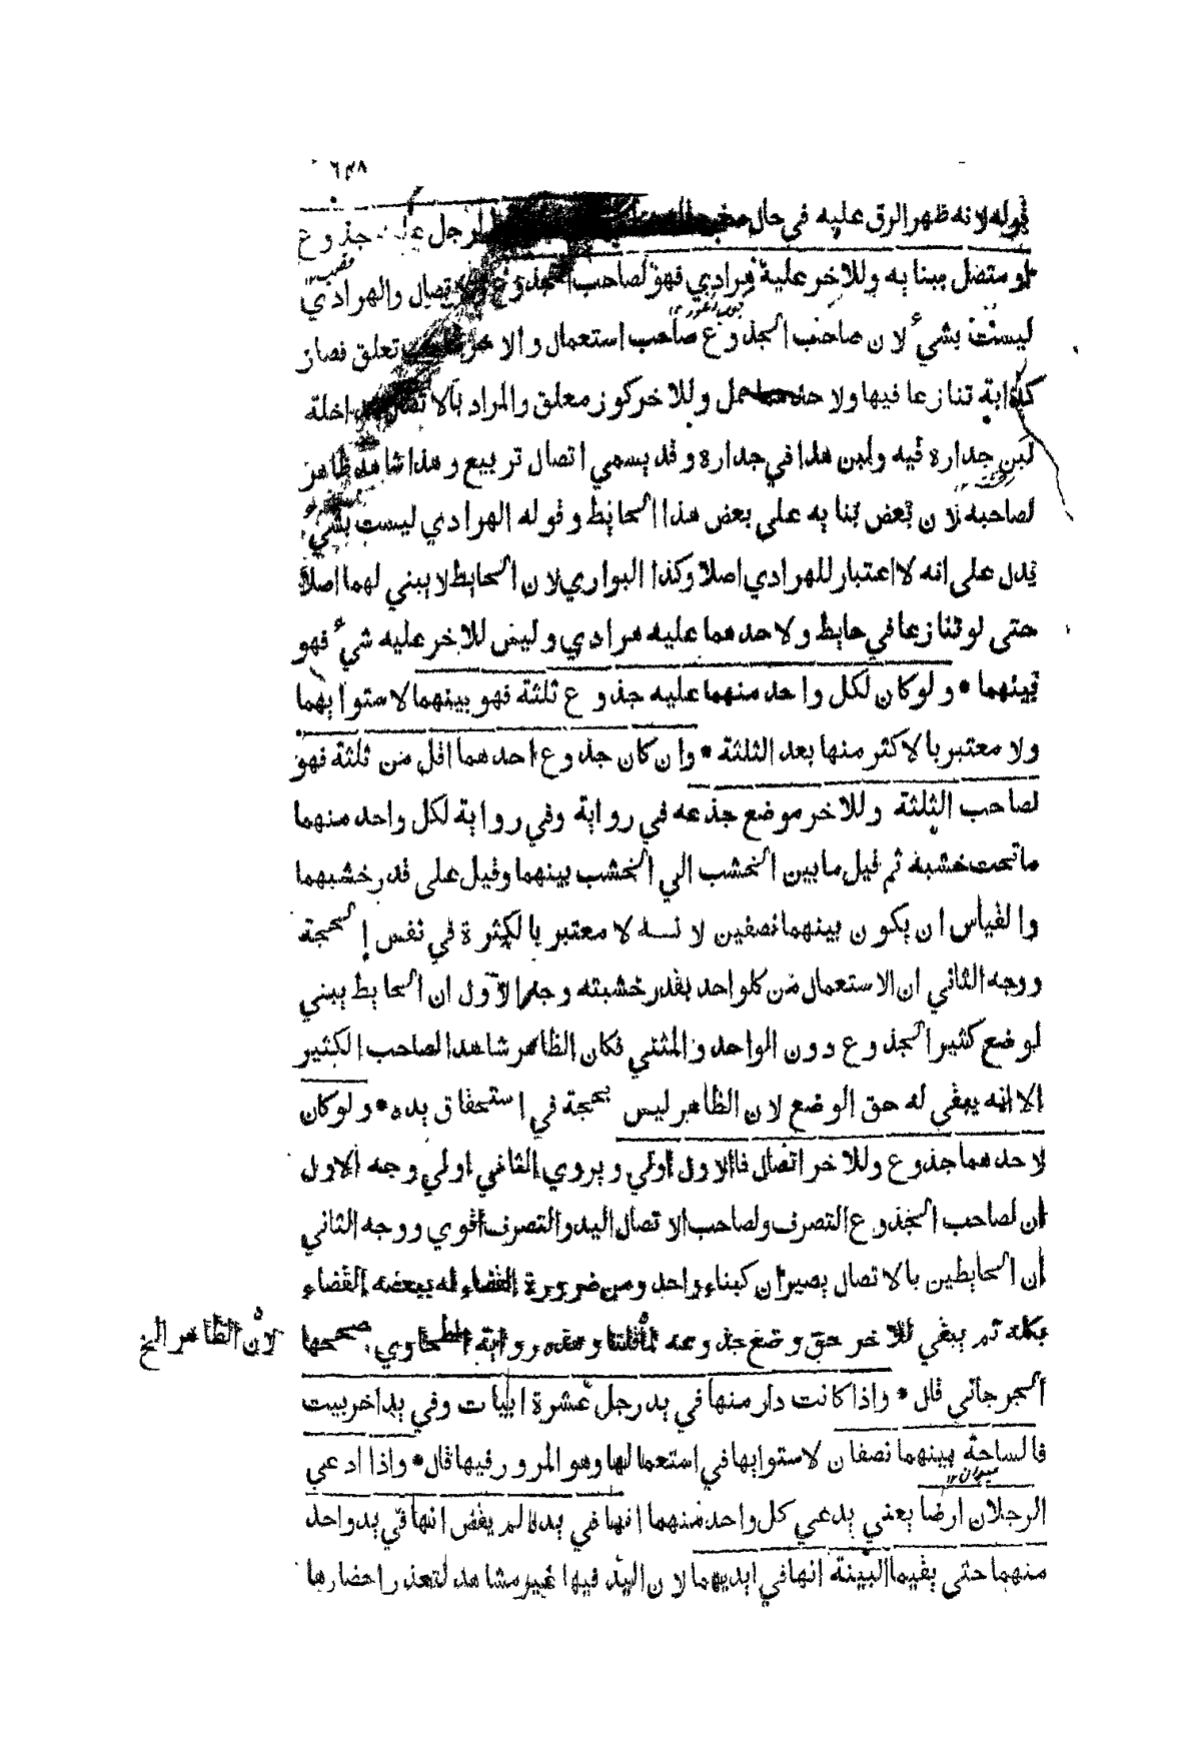 ٦٣٨
قوله لانه ظهر الرق عليه في حال لرجل عليه جذوع
او متصل ببنا به وللاخر عليه هرادي فهو لصاحب الجذوع تصال والهرادي
ليست بشيء لان صاحب الجذوع صاحب استعمال والاخر تعلق فصار
كدابة تنازعا فيها ولاحدهما حمل وللاخر كوز معلق والمراد بالاتصال اخلة
لبن جداره فيه ولبن هذا في جداره وقد يسمي اتصال تربيع وهذا شاهد ظاهر
لصاحبه لان بعض بنا به علي بعض هذا الحايط وقوله الهرادي ليست بشيء
يدل علي انه لا اعتبار للهرادي اصلا وكذا البواري لان الحايط لا يبني لهما اصلا
حتي لو تنازعا في حايط ولاحدهما عليه هرادي وليس للاخر عليه شيء فهو
بينهما * ولو كان لكل واحد منهما عليه جذوع ثلثة فهو بينهما لاستوا بهما
ولا معتبر بالاكثر منها بعد الثلثة * وان كان جذوع احدهما اقل من ثلثة فهو
لصاحب الثلثة وللاخر موضع جذعه في رواية وفي رواية لكل واحد منهما
ما تحت خشبة ثم قيل ما بين الخشب الي الخشب بينهما وقيل علي قدر خشبهما
والقياس ان يكون بينهما نصفين لانه لا معتبر بالكثرة في نفس الحجة
ووجه الثاني ان الاستعمال من كلواحد بقدر خشبته وجه الاول ان الحايط يبني
لوضع كثير الجذوع دون الواحد والمثني فكان الظاهر شاهدا لصاحب الكثير
الا انه يبقي له حق الوضع لان الظاهر ليس بحجة في استحقاق يده * ولو كان
لاحدهما جذوع وللاخر اتصال فالاول اولي ويروي الثاني اولي وجه الاول
ان لصاحب الجذوع التصرف ولصاحب الاتصال اليد والتصرف اقوي ووجه الثاني
ان الحايطين بالاتصال يصيران كبناء واحد ومن ضرورة القضاء له ببعضه القضاء
بكله ثم يبقي للاخر حق وضع جذوعه لما قلنا وهذه رواية الطحاوي صححها
لان الظاهر الخ
الجرجاني قال * واذا كانت دار منها في يد رجل عشرة ابيات وفي يد اخر بيت
فالساحة بينهما نصفان لاستوابها في استعمالها وهو المرور فيها قال * واذا ادعي
الرجلان ارضا يعني يدعي كل واحد منهما انها في يده لم يقض انها في يد واحد
منهما حتي يقيما البينة انها في ايديهما لان اليد فيها غير مشاهد لتعذر احضارها